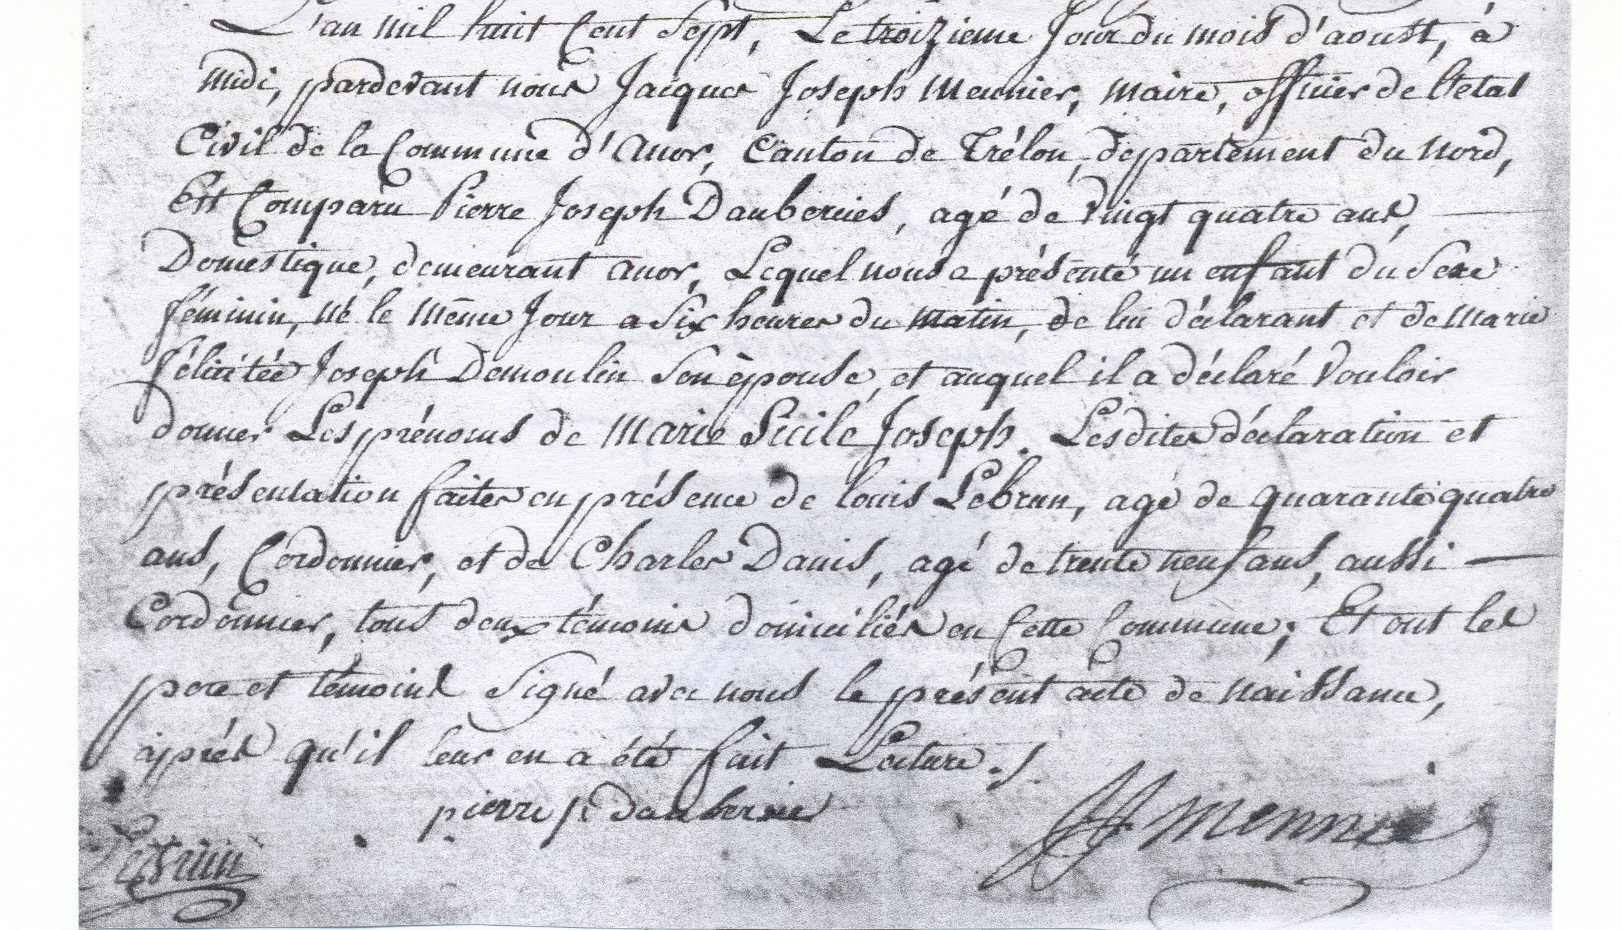 L'an mil huit Cent Sept, Le troizieme Jour du mois d'aoust, à
midi, pardevant nous Jacques Joseph Meunier, maire, officier de l'état
Civil de la Commune d'Anor, Canton de Trélon, département du Nord,
Est Comparu Pierre Joseph Daubercies, agé de Vingt quatre ans,
Domestique, demeurant anor, Lequel nous a présenté un enfant du Sexe
féminin, né le même Jour a Six heures du matin, de lui déclarant et de Marie
félicitée Joseph Demoulin Son épouse, et auquel il a déclaré Vouloir
donner Les prénoms de Marie Sicile Joseph. Lesdites déclaration et
présentation faites en présence de louis Lebrun, agé de quarante quatre
ans, Cordonnier, et de Charles Danis, agé de trente neuf ans, aussi
Cordonnier, tous deux témoins domiciliés en Cette Commune; Et ont les
pere et témoins Signé avec nous le présent acte de naissance,
après qu'il leur en a été fait Lecture.
pierre j. daubercie
JJ Meunier
Lebrun